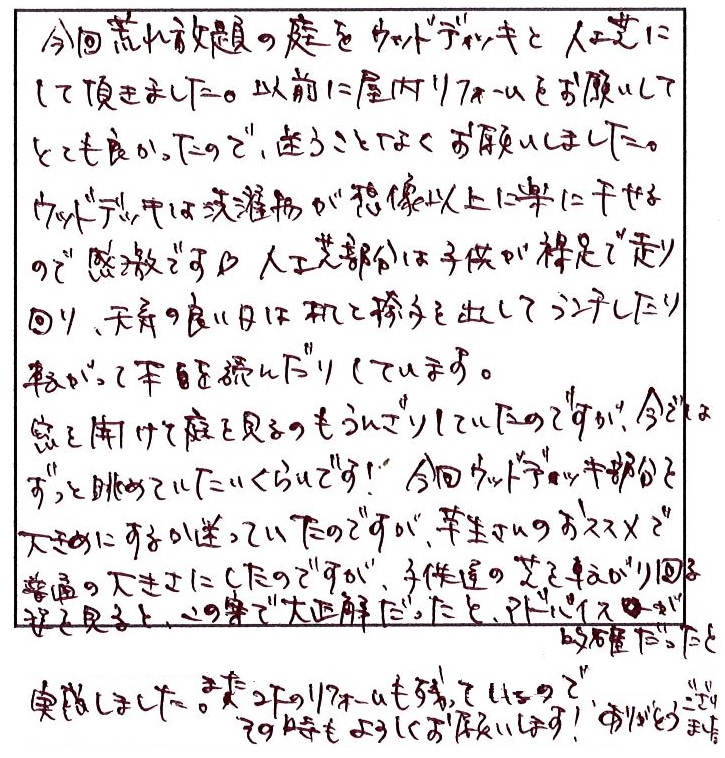 今回荒れ放題の庭をウッドデッキと人工芝に
して頂きました。以前に屋内リフォームをお願いして
とても良かったので、迷うことなくお願いしました。
ウッドデッキは洗濯物が想像以上に楽に干せる
ので感激です♡ 人工芝部分は子供が裸足で走り
回り、天気の良い日は机と椅子を出してランチしたり
転がって本を読んだりしています。
窓を開けて庭を見るのもうんざりしていたのですが、今では
ずっと眺めていたいくらいです! 今回ウッドデッキ部分を
大きめにするか迷っていたのですが、草生さんのおススメで
普通の大きさにしたのですが、子供達の芝を転がり回る
姿を見ると、この案で大正解だったと、アドバイスが
的確だったと
実感しました。まだ コトのリフォームも残っているので
その時もよろしくお願いします! ありがとうござい
ました